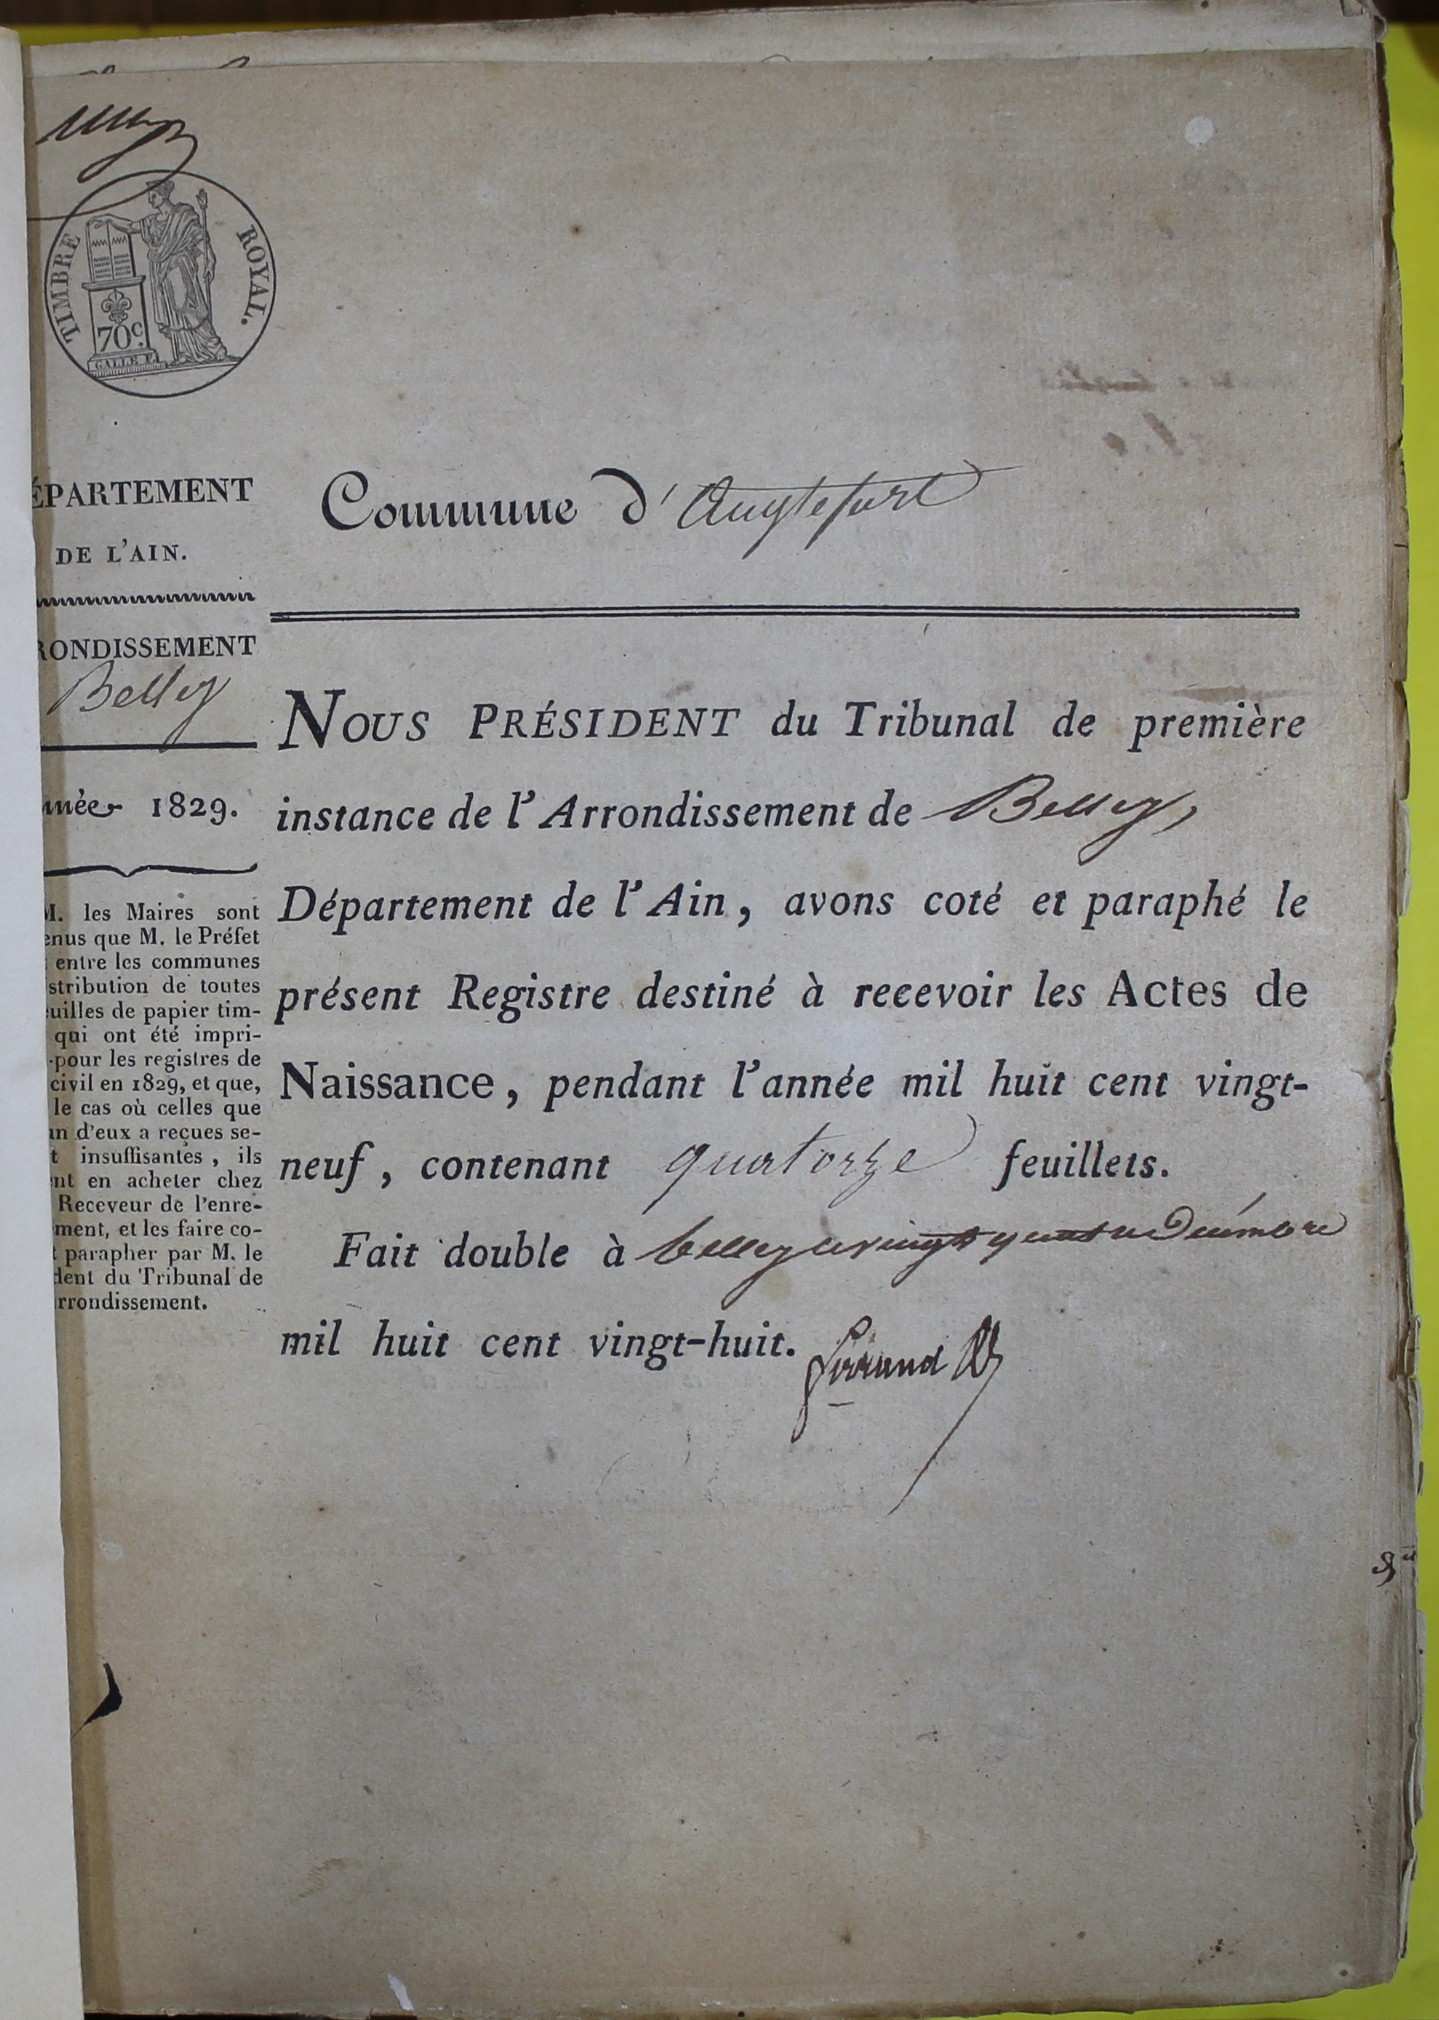 TIMBRE ROYAL.
70c.
ÉPARTEMENT
DE L'AIN.
RONDISSEMENT
Belley
nnée 1829.
M. les Maires sont
enus que M. le Préfet
entre les communes
stribution de toutes
uilles de papier tim-
qui ont été impri-
pour les registres de
civil en 1829, et que,
le cas où celles que
un d'eux a reçues se-
t insuffisantes, ils
nt en acheter chez
Receveur de l'enre-
ment, et les faire co-
t parapher par M. le
dent du Tribunal de
rrondissement.
Commune d'Anglefort
NOUS PRÉSIDENT du Tribunal de première
instance de l'Arrondissement de Belley,
Département de l'Ain, avons coté et paraphé le
présent Registre destiné à recevoir les Actes de
Naissance, pendant l'année mil huit cent vingt-
neuf, contenant quatorze feuillets.
Fait double à belley le vingt quatre Décembre
mil huit cent vingt-huit.